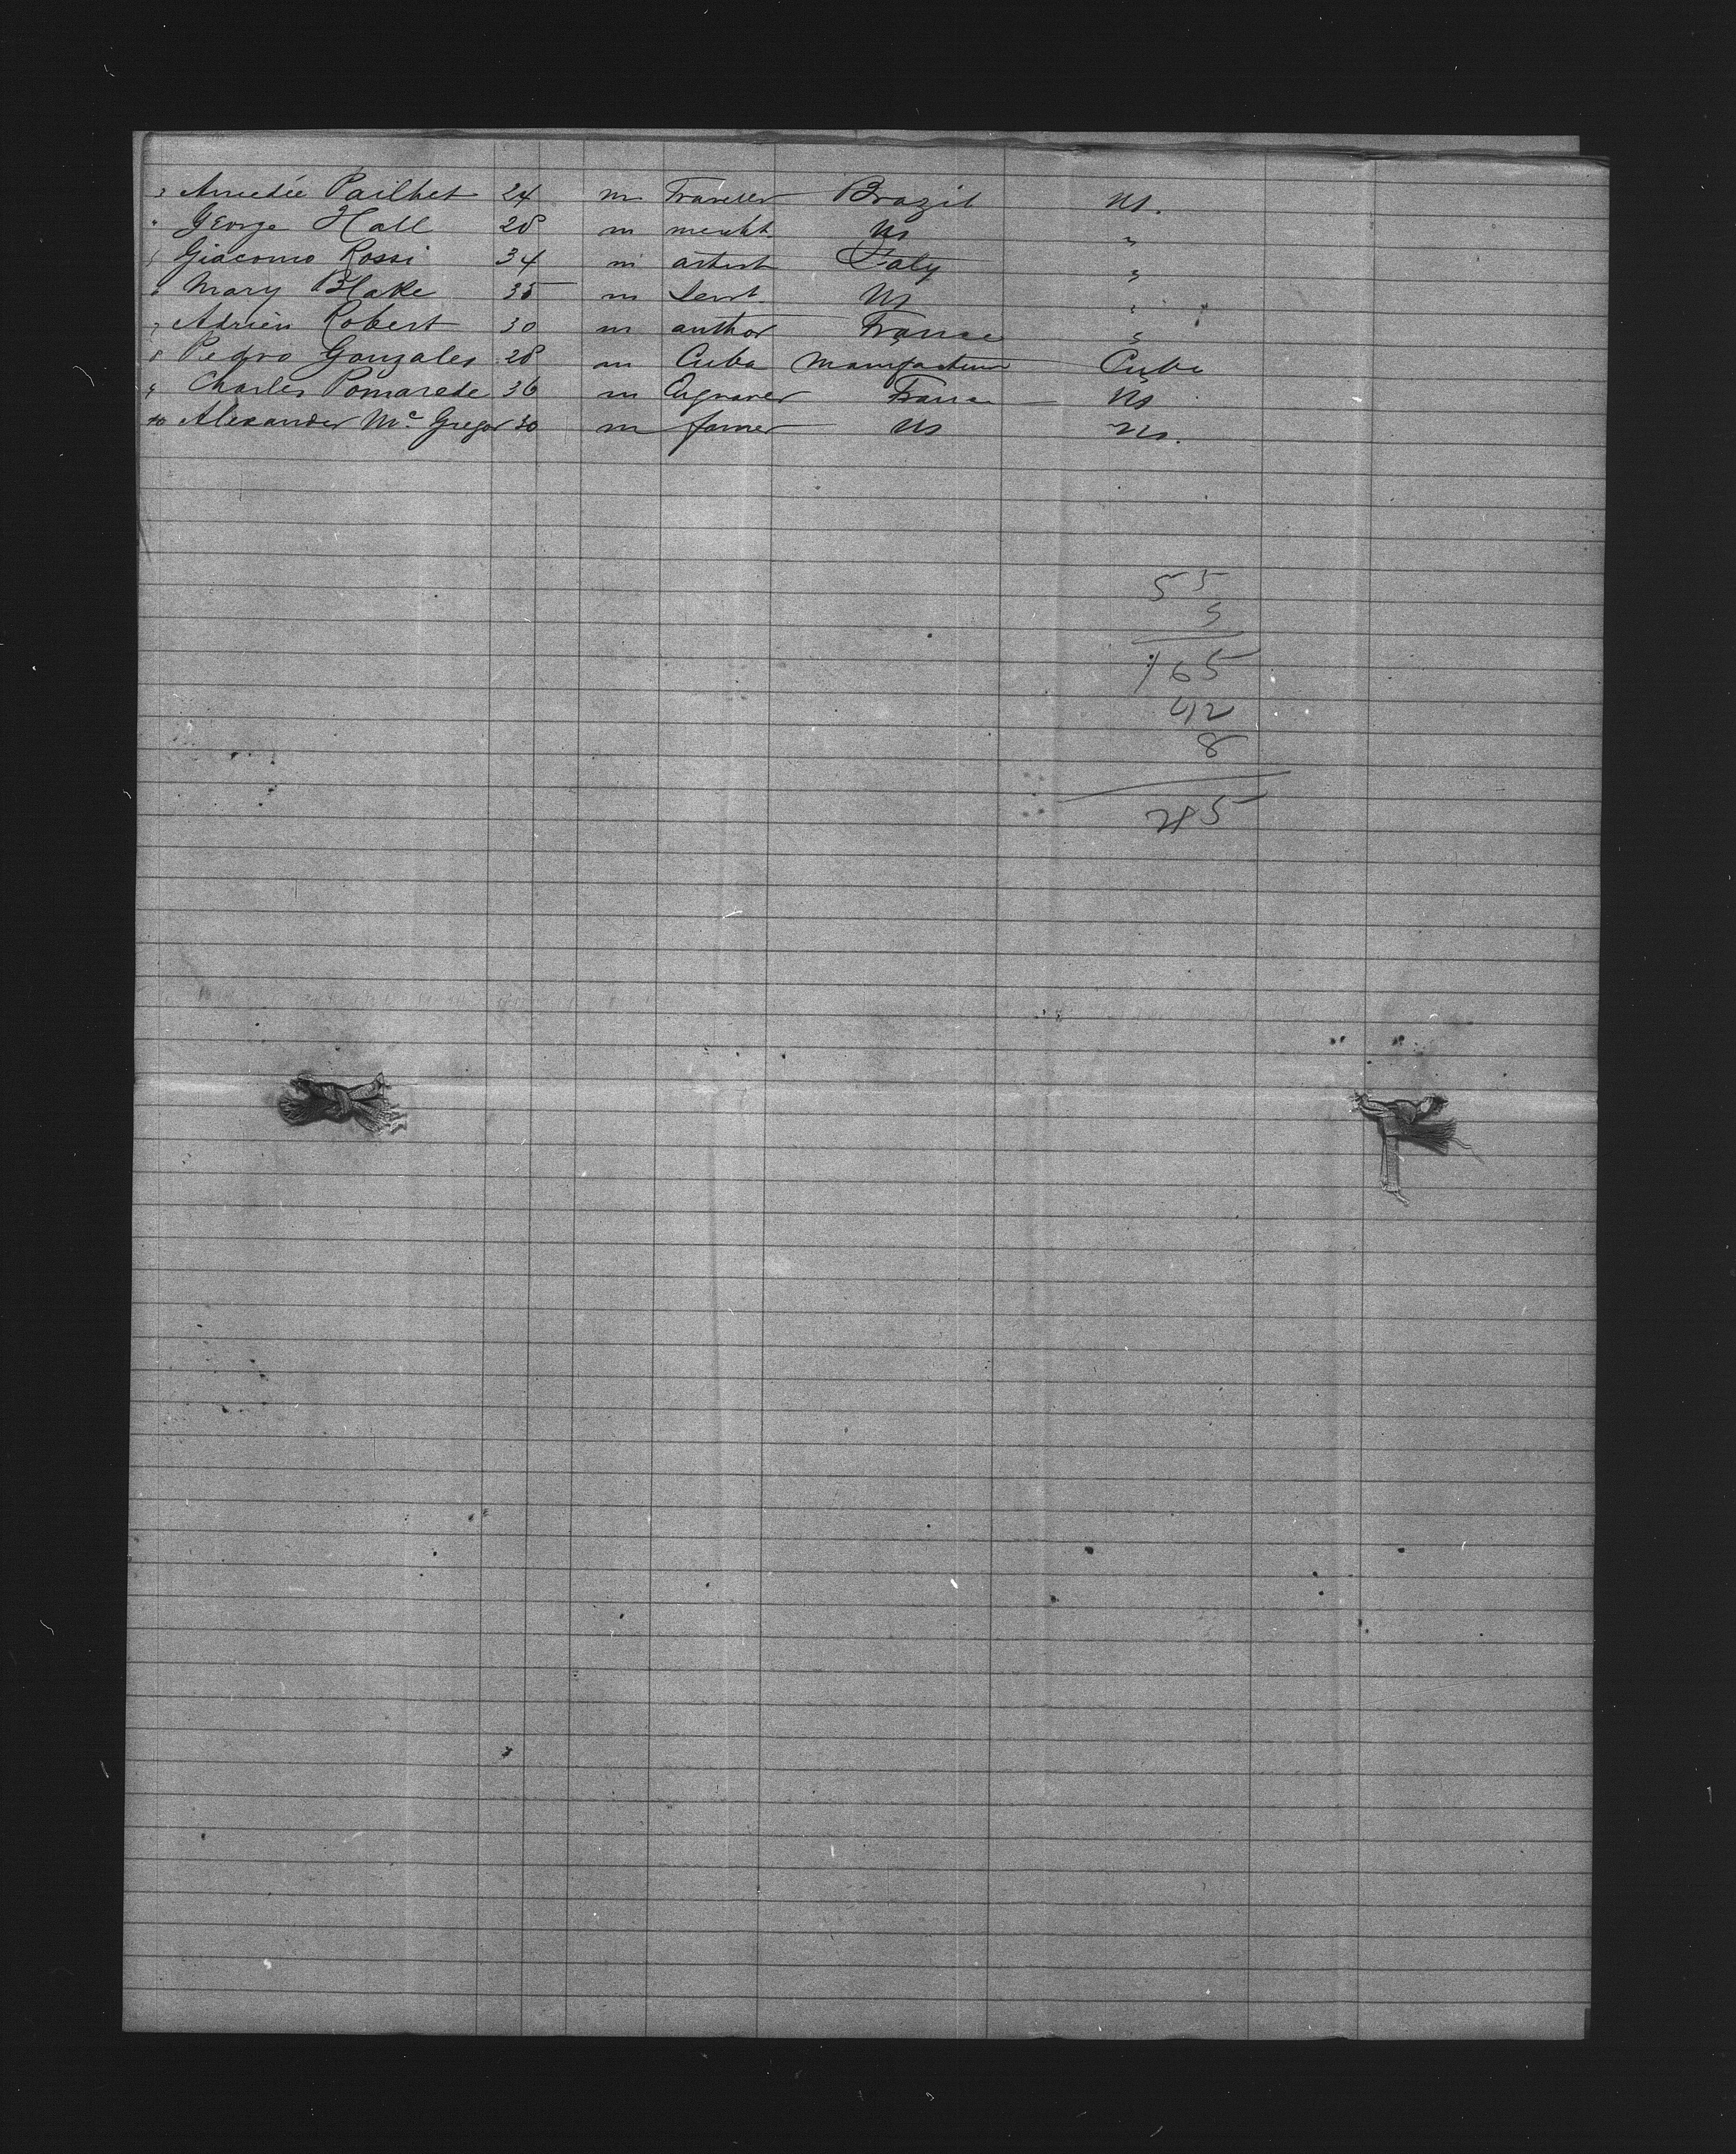 3 Amedée Pailhet 24 m Traveller Brazil US.
" George Hall 28 m mercht. US "
5 Giacomo Rossi 34 m artist Italy "
6 Mary Blake 35 m Servt. US "
7 Adrien Robert 30 m author France "
8 Pedro Gonzales 28 m Cuba Manufacturer Cuba
9 Charles Pomarede 36 m Engraver France US
10 Alexander Mc Gregor 30 m farmer US US.
55
5
165
42
8
285